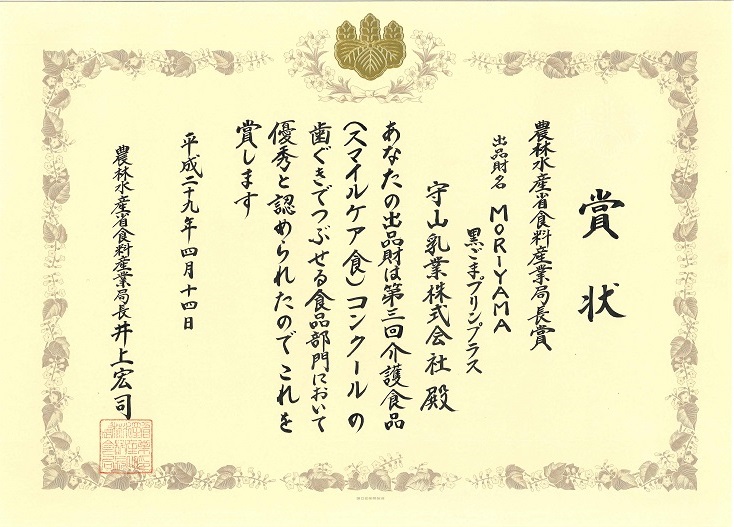 賞状
農林水産省食料産業局長賞
出品財名 MORIYAMA
黒ごまプリンプラス
守山乳業株式会社 殿
あなたの出品財は第三回介護食品
(スマイルケア食)コンクールの
歯ぐきでつぶせる食品部門において
優秀と認められたのでこれを
賞します
平成二十九年四月十四日
農林水産省食料産業局長 井上宏司